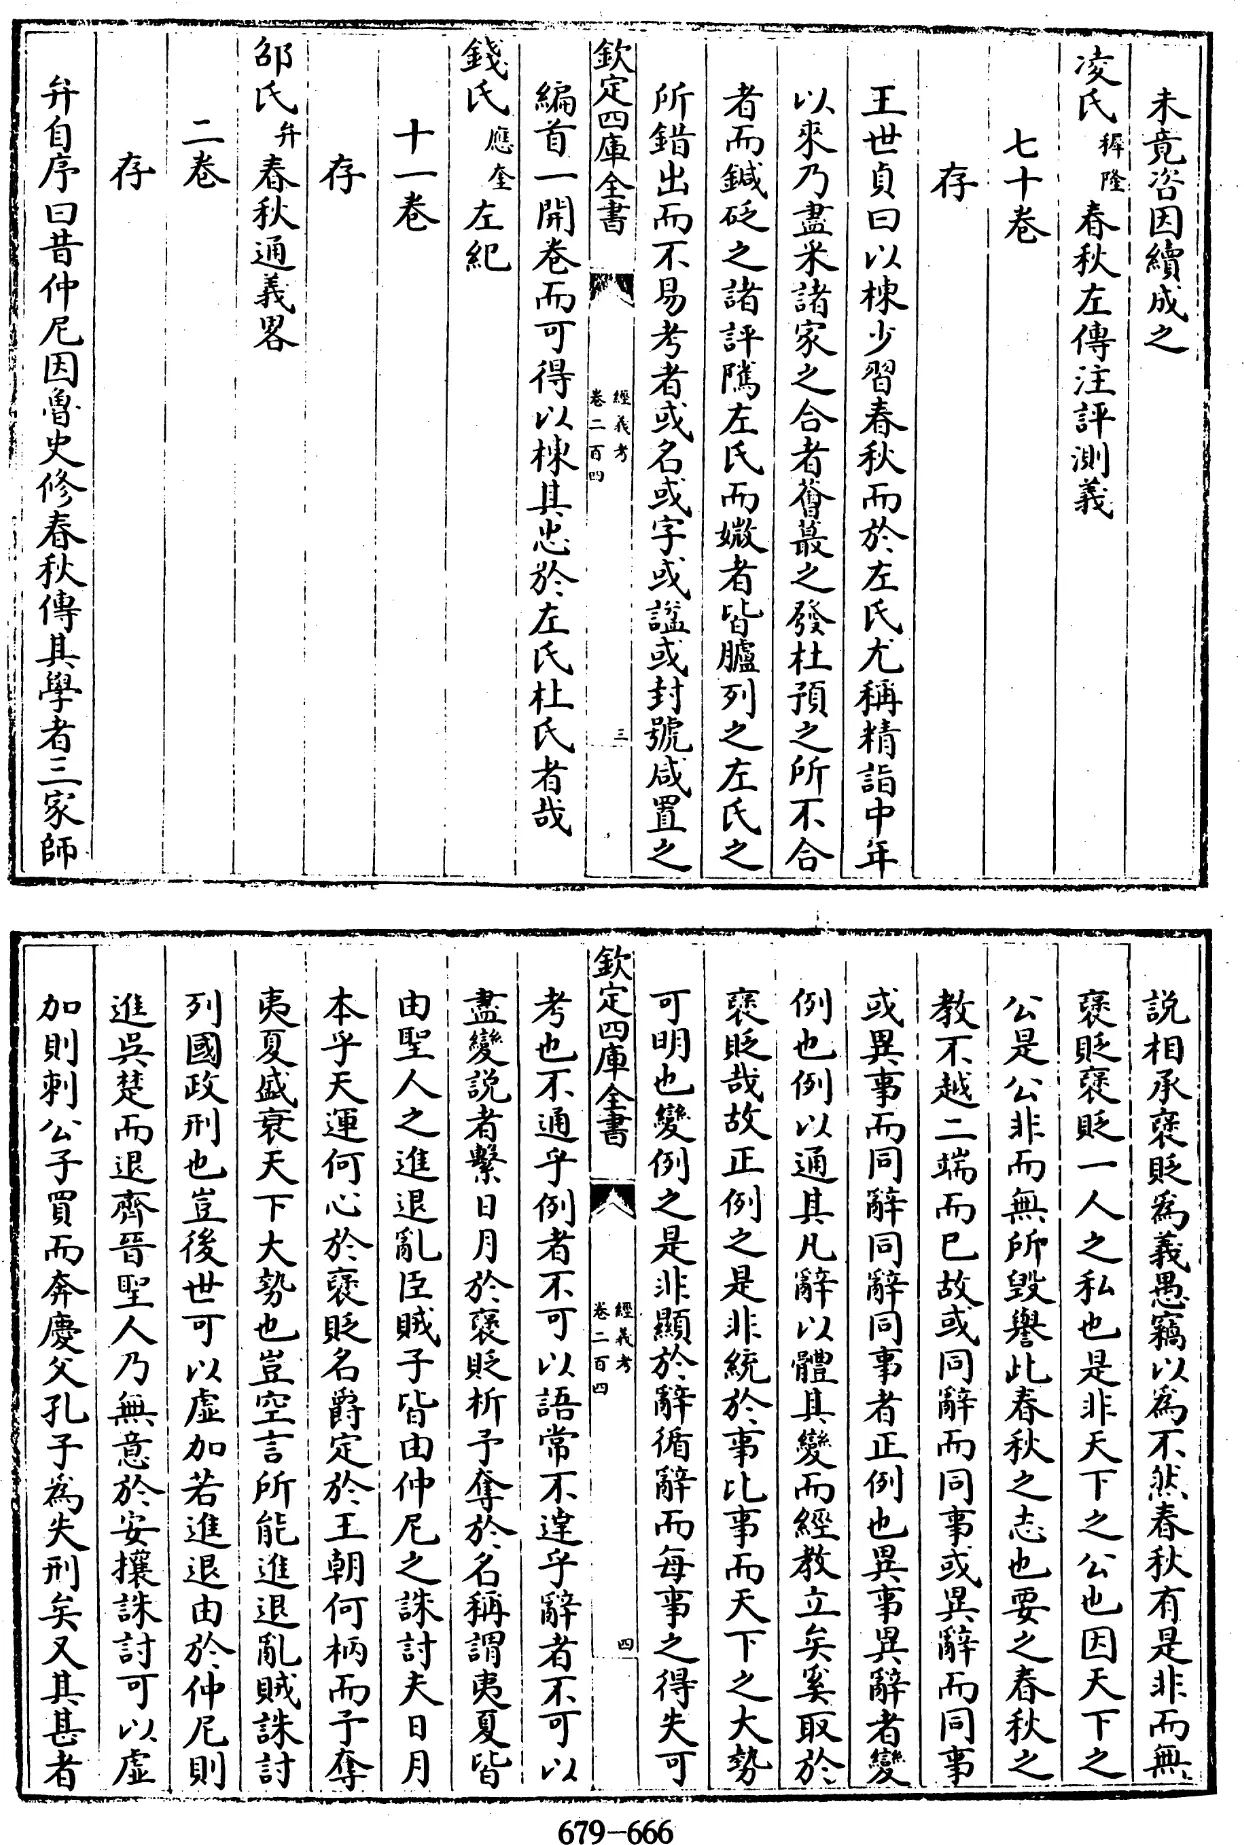 未竟咨因續成之
凌氏稺隆春秋左傳注評測義
七十卷
存
王世貞曰以棟少習春秋而於左氏尤稱精詣中年
以來乃盡米諸家之合者薈蕞之發杜預之所不合
者而鍼砭之諸評隲左氏而媺者皆臚列之左氏之
所錯出而不易考者或名或字或諡或封號咸置之
欽定四庫全書
經義考
卷二百四
三
編首一開卷而可得以棟其忠於左氏杜氏者哉
錢氏應奎左紀
十一卷
存
邵氏弁春秋通義畧
二卷
存
弁自序曰昔仲尼因魯史修春秋傳其學者三家師
說相承褒貶為義愚竊以為不然春秋有是非而無
褒貶褒貶一人之私也是非天下之公也因天下之
公是公非而無所毀譽此春秋之志也要之春秋之
教不越二端而已故或同辭而同事或異辭而同事
或異事而同辭同辭同事者正例也異事異辭者變
例也例以通其凡辭以體其變而經教立矣奚取於
褒貶哉故正例之是非統於事比事而天下之大勢
可明也變例之是非顯於辭循辭而每事之得失可
欽定四庫全書
經義考
卷二百四
四
考也不通乎例者不可以語常不達乎辭者不可以
盡變說者繫日月於褒貶析予奪於名稱謂夷夏皆
由聖人之進退亂臣賊子皆由仲尼之誅討夫日月
本乎天運何心於褒貶名爵定於王朝何柄而予奪
夷夏盛衰天下大勢也豈空言所能進退亂賊誅討
列國政刑也豈後世可以虛加若進退由於仲尼則
進吳楚而退齊晉聖人乃無意於安攘誅討可以虛
加則刺公子買而奔慶父孔子為失刑矣又其甚者
679-666